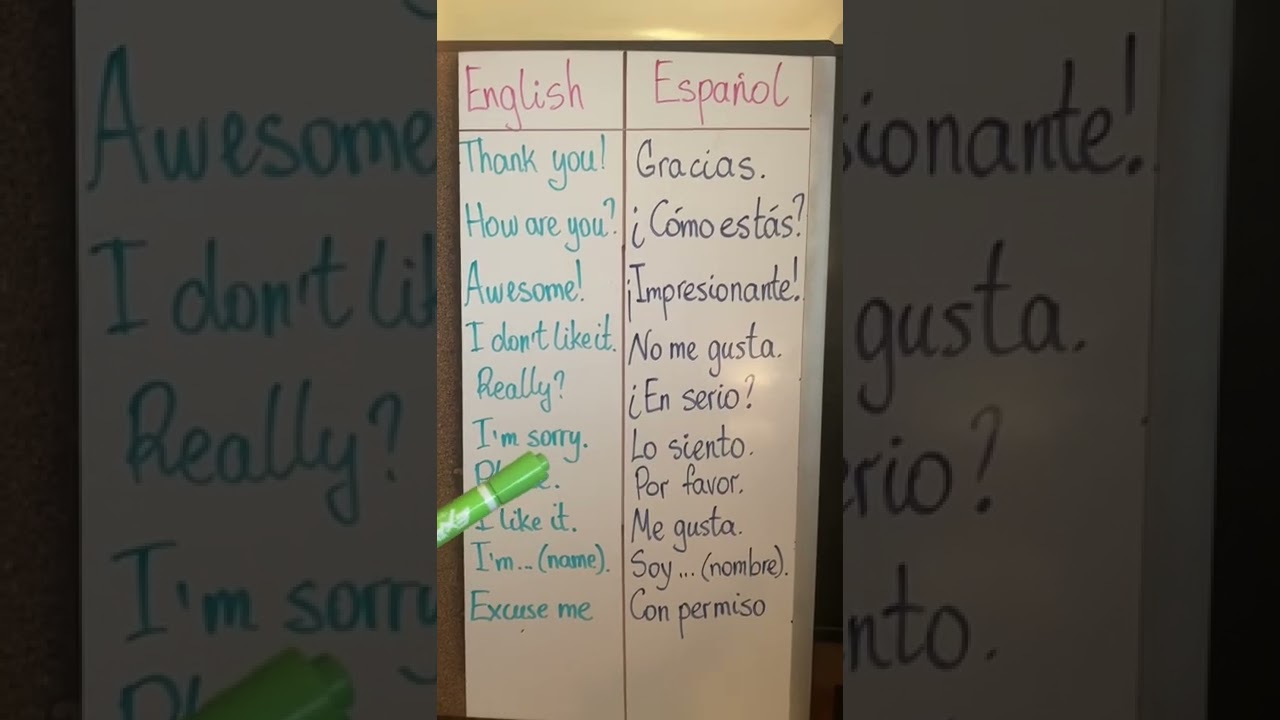 English Español
Thank you! Gracias.
How are you? ¿Cómo estás?
Awesome! ¡Impresionante!
I don't like it. No me gusta.
Really? ¿En serio?
I'm sorry. Lo siento.
Por favor.
I like it. Me gusta.
I'm... (name). Soy... (nombre).
Excuse me Con permiso